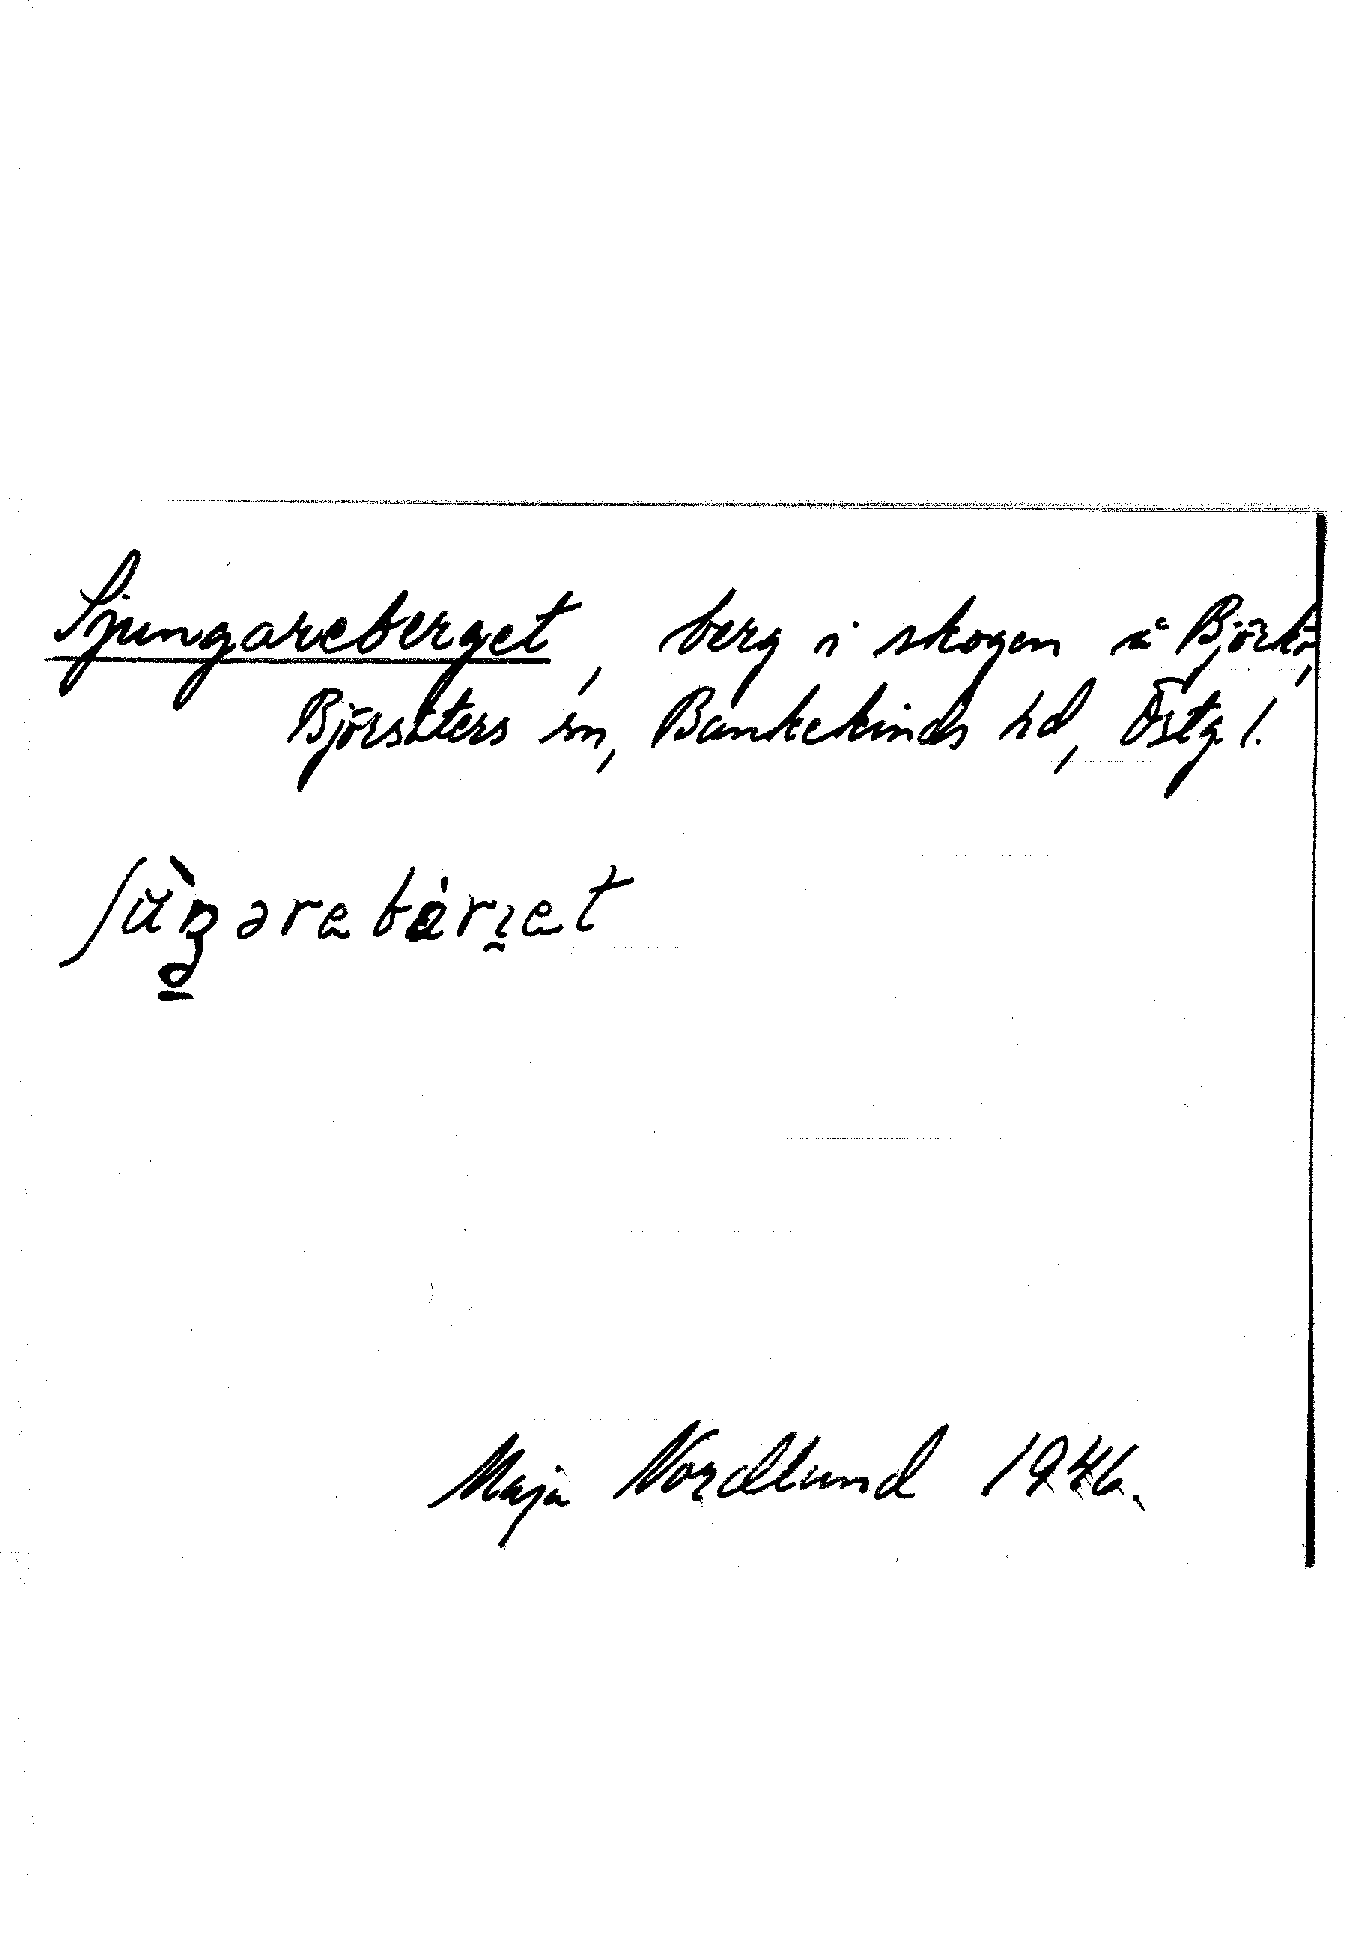 Sjungareberget, berg i skogen å Björkö,
Björsäters sn, Bankekinds hd, Östg l.
Maja Nordlund 1946.